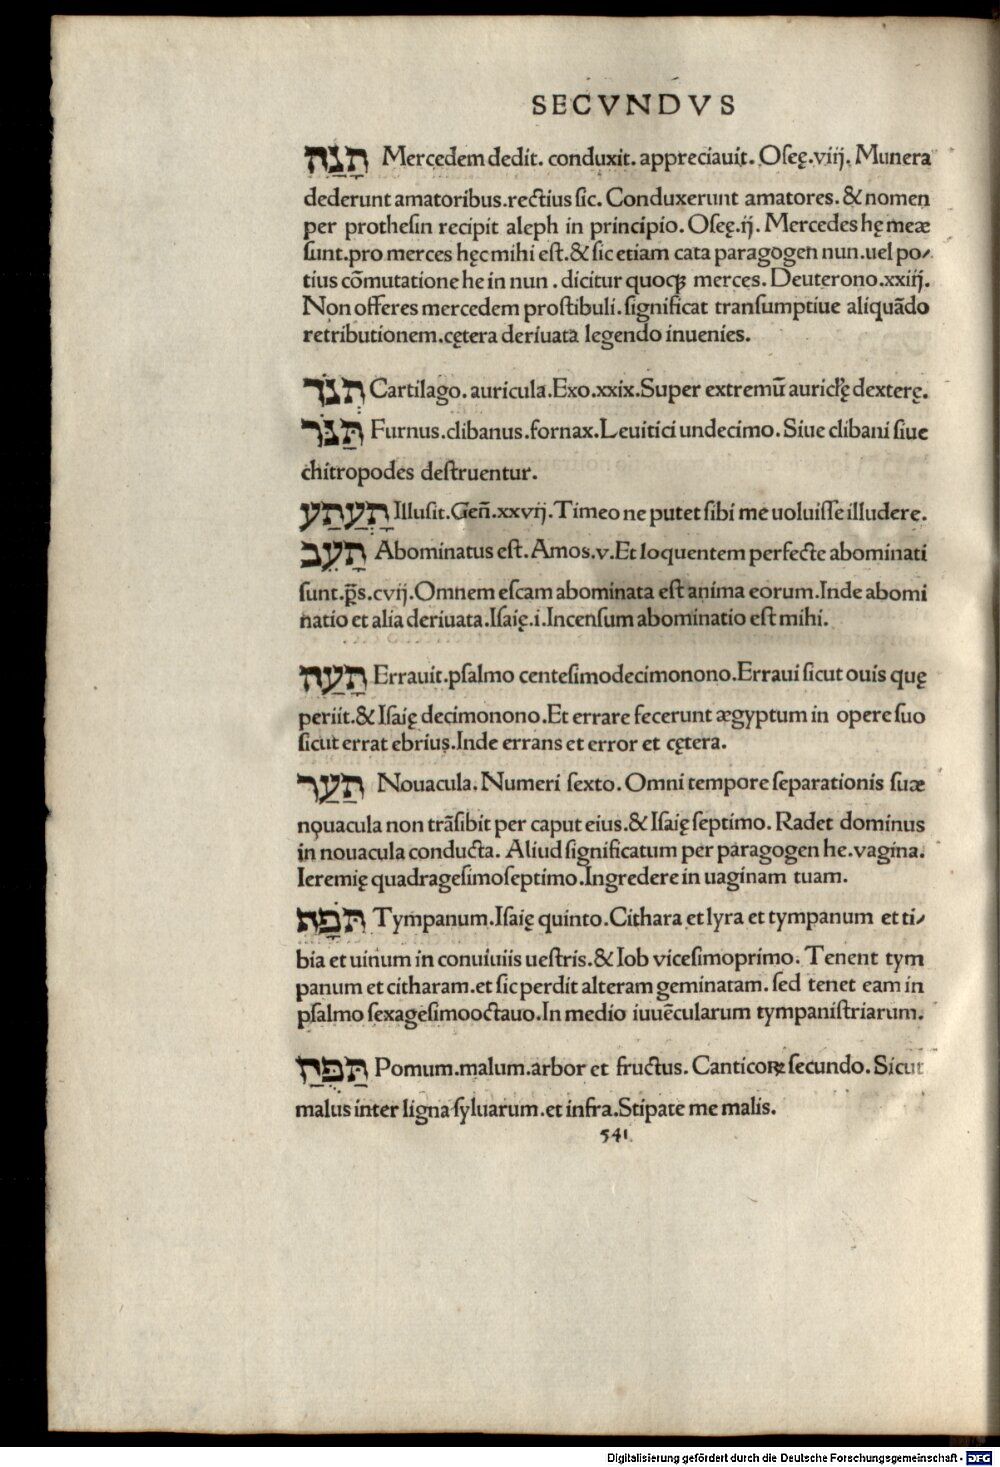 SECVNDVS
תָנָה Mercedem dedit. conduxit. appreciauit. Oſeę.viij. Munera
dederunt amatoribus.rectius ſic. Conduxerunt amatores. & nomen
per protheſin recipit aleph in principio. Oſeę.ij. Mercedes hę meæ
ſunt.pro merces hęc mihi eſt.& ſic etiam cata paragogen nun.uel po⸗
tius cōmutatione he in nun . dicitur quoqꝫ merces. Deuterono.xxiij.
Non offeres mercedem proſtibuli.ſignificat tranſumptiue aliquādo
retributionem.cętera deriuata legendo inuenies.
תְנֹךְ Cartilago. auricula.Exo.xxix.Super extremū auricľę dexterę.
תַּנֹּר Furnus.clibanus.fornax.Leuitici undecimo. Siue clibani ſiue
chitropodes deſtruentur.
תָעְתַע Illuſit.Geñ.xxvij.Timeo ne putet ſibi me uoluiſſe illudere.
תָעֵב Abominatus eſt. Amos.v.Et loquentem perfecte abominati
ſunt.p̄s.cvij.Omnem eſcam abominata eſt anima eorum.Inde abomi
natio et alia deriuata.Iſaię.i.Incenſum abominatio eſt mihi.
תָעַה Errauit.pſalmo centeſimodecimonono.Erraui ſicut ouis quę
periit.& Iſaię decimonono.Et errare fecerunt ægyptum in opere ſuo
ſicut errat ebrius.Inde errans et error et cętera.
תַעַר Nouacula. Numeri ſexto. Omni tempore ſeparationis ſuæ
nouacula non trāſibit per caput eius.& Iſaię ſeptimo. Radet dominus
in nouacula conducta. Aliud ſignificatum per paragogen he.vagina.
Ieremię quadrageſimoſeptimo.Ingredere in uaginam tuam.
תֹּפֶת Tympanum.Iſaię quinto.Cithara et lyra et tympanum et ti⸗
bia et uinum in conuiuiis ueſtris.& Iob viceſimoprimo. Tenent tym
panum et citharam.et ſic perdit alteram geminatam. ſed tenet eam in
pſalmo ſexageſimooctauo.In medio iuuēcularum tympaniſtriarum.
תַּפֻּחַ Pomum.malum.arbor et fructus. Canticoꝝ ſecundo. Sicut
malus inter ligna ſyluarum.et infra.Stipate me malis.
541
Digitalisierung gefördert durch die Deutsche Forschungsgemeinschaft - DFG